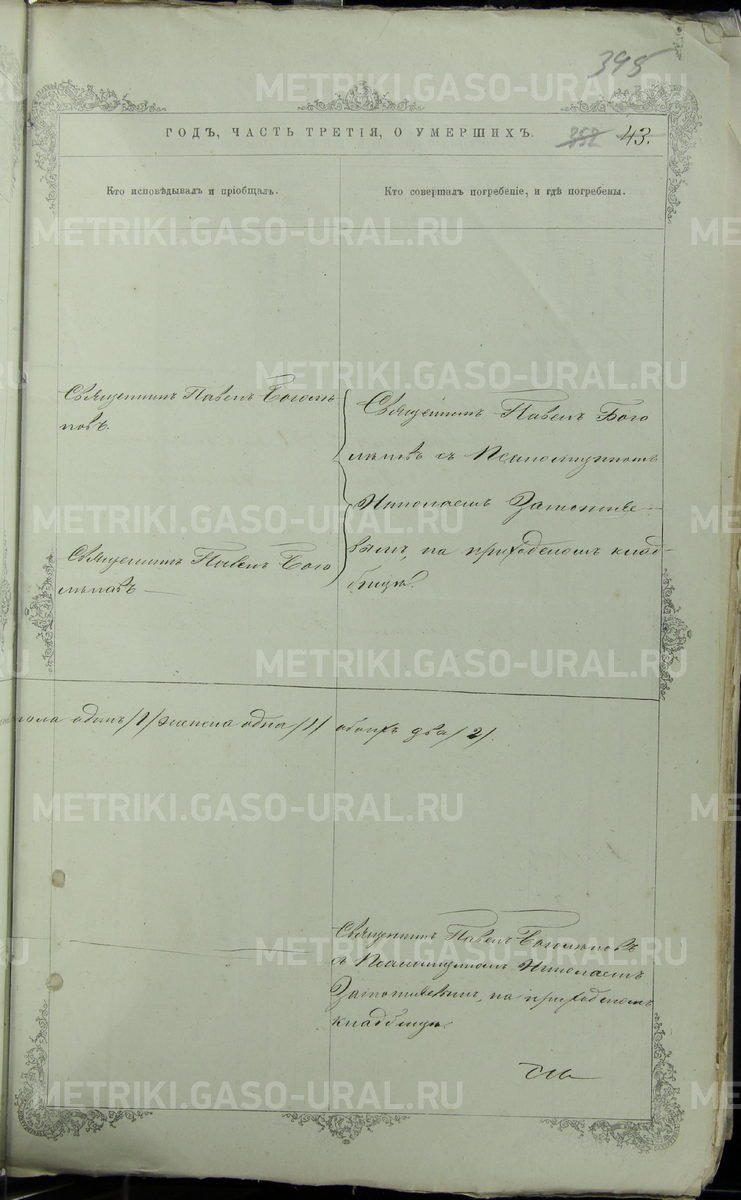 395
ГОДЪ, ЧАСТЬ ТРЕТІЯ, О УМЕРШИХЪ.
358 43.
Кто исповѣдывалъ и пріобщалъ.
Кто совершалъ погребеніе, и гдѣ погребены.
Священникъ Павелъ Боголѣ
повъ.
Священникъ Павелъ Бого
лѣповъ
Священникъ Павелъ Бого
лѣповъ съ Псаломщикомъ
Николаемъ
вымъ, на приходскомъ клад-
бищѣ.
пола одинъ /1/ женска одна /1/ обоихъ два /2/.
Священникъ Павелъ Боголѣповъ
съ Псаломщикомъ Николаемъ
на приходскомъ
кладбищѣ
METRIKI.GASO-URAL.RU